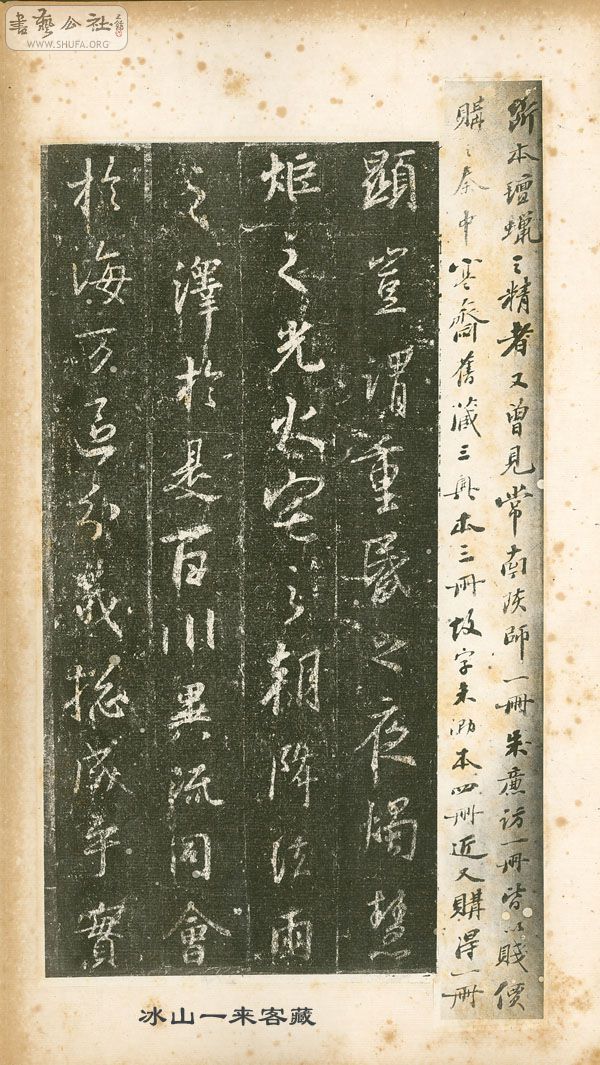 書藝公社
WWW.SHUFA.ORG
斷本氊蠟之精者又曾見常南陔師一冊朱廉訪一冊皆以賤價
購之秦中寒齋舊藏三典本三冊故字未泐本四冊近又購得一冊
顯豈謂重昬之夜燭慧
炬之光火宅之朝降法雨
之澤於是百川異流同會
於海万區分義揔成乎實
冰山一来客藏